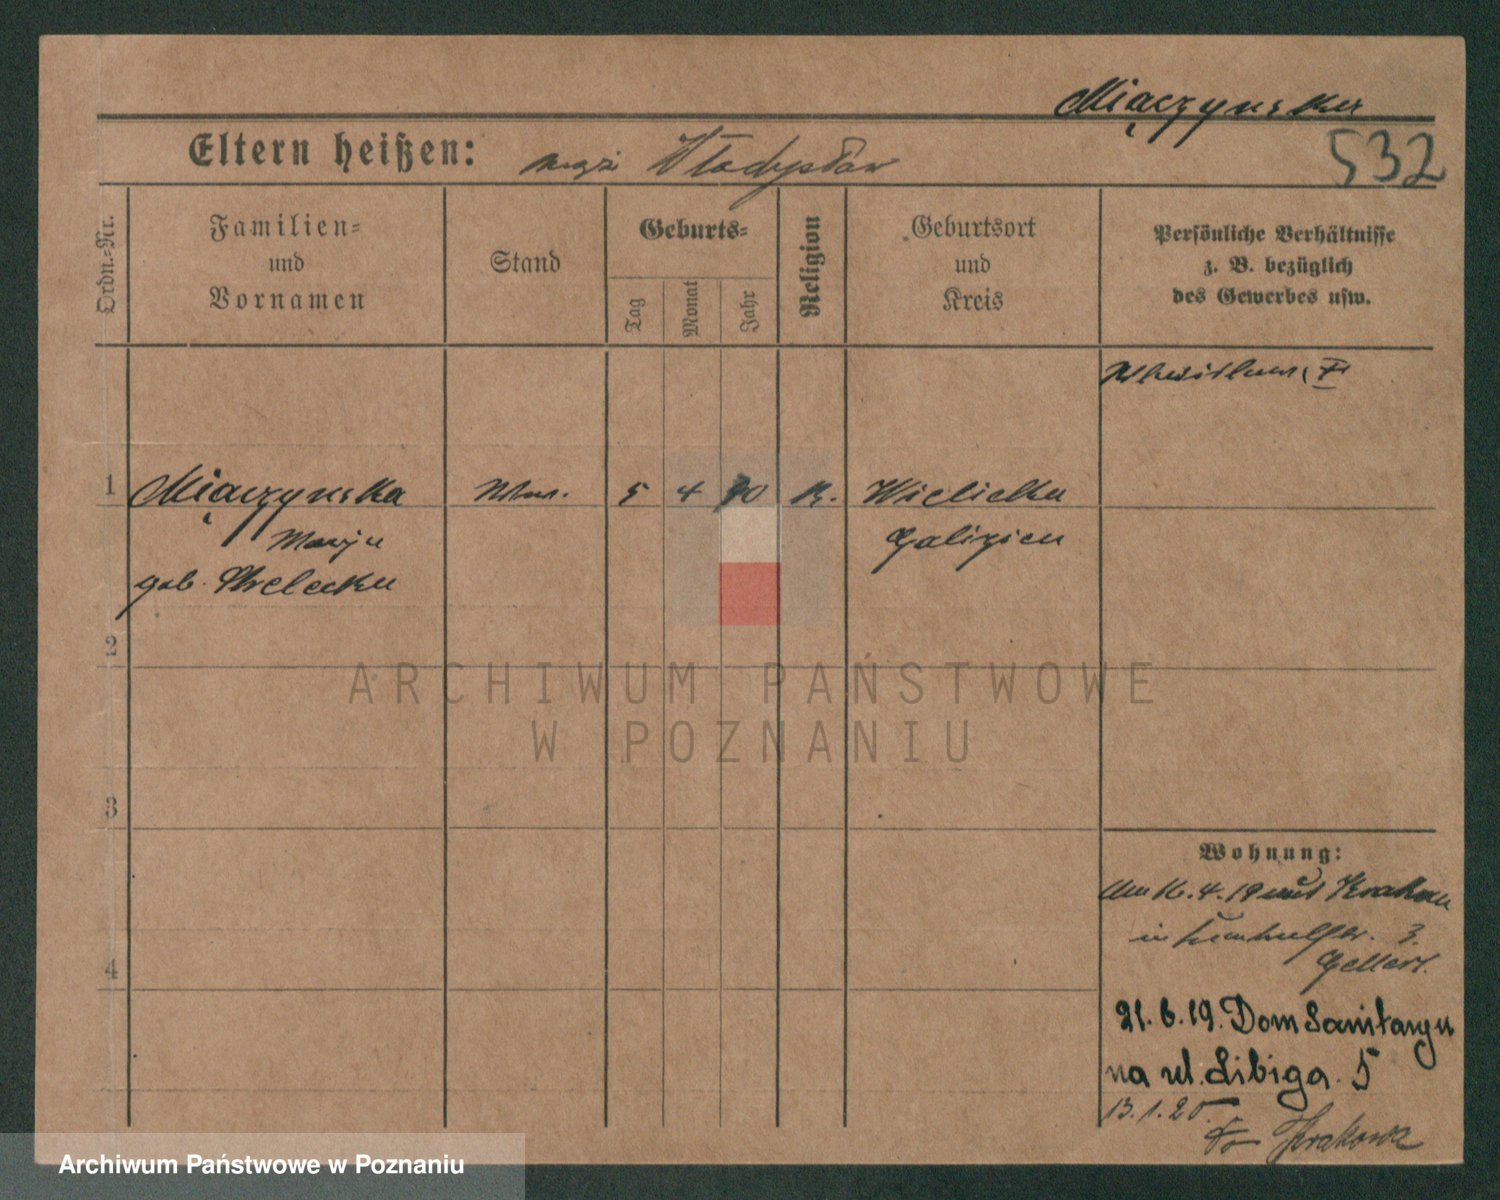 Miączynska
532
Eltern heißen: mąż Władysław
Ordn.-Nr.
Familien- und Vornamen
Stand
Geburts-
Tag
Monat
Jahr
Religion
Geburtsort und Kreis
Persönliche Verhältnisse z. B. bezüglich des Gewerbes usw.
1
Miączynska
5
4
K.
Wieliczka
Marja
Galizien
geb.
2
ARCHIWUM PAŃSTWOWE
W POZNANIU
3
Wohnung:
4
Am 16. 4. 19 aus Krakau
in 3.
21. 6. 19. Dom Sanitarny
na ul. Libiga. 5
13. 1. 20
Krakowa
Archiwum Państwowe w Poznaniu